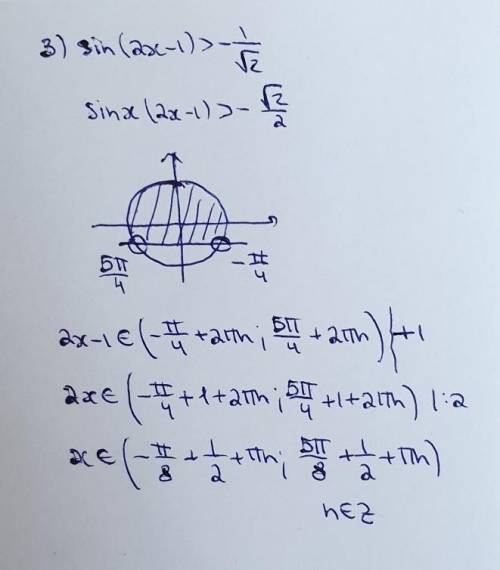 3) sin(2x-1)>-1/√2
sinx(2x-1)>-√2/2
5π/4 -π/4
2x-1∈(-π/4+2πn; 5π/4+2πn)}+1
2x∈(-π/4+1+2πn; 5π/4+1+2πn) |:2
x∈(-π/8+1/2+πn; 5π/8+1/2+πn)
n∈Z